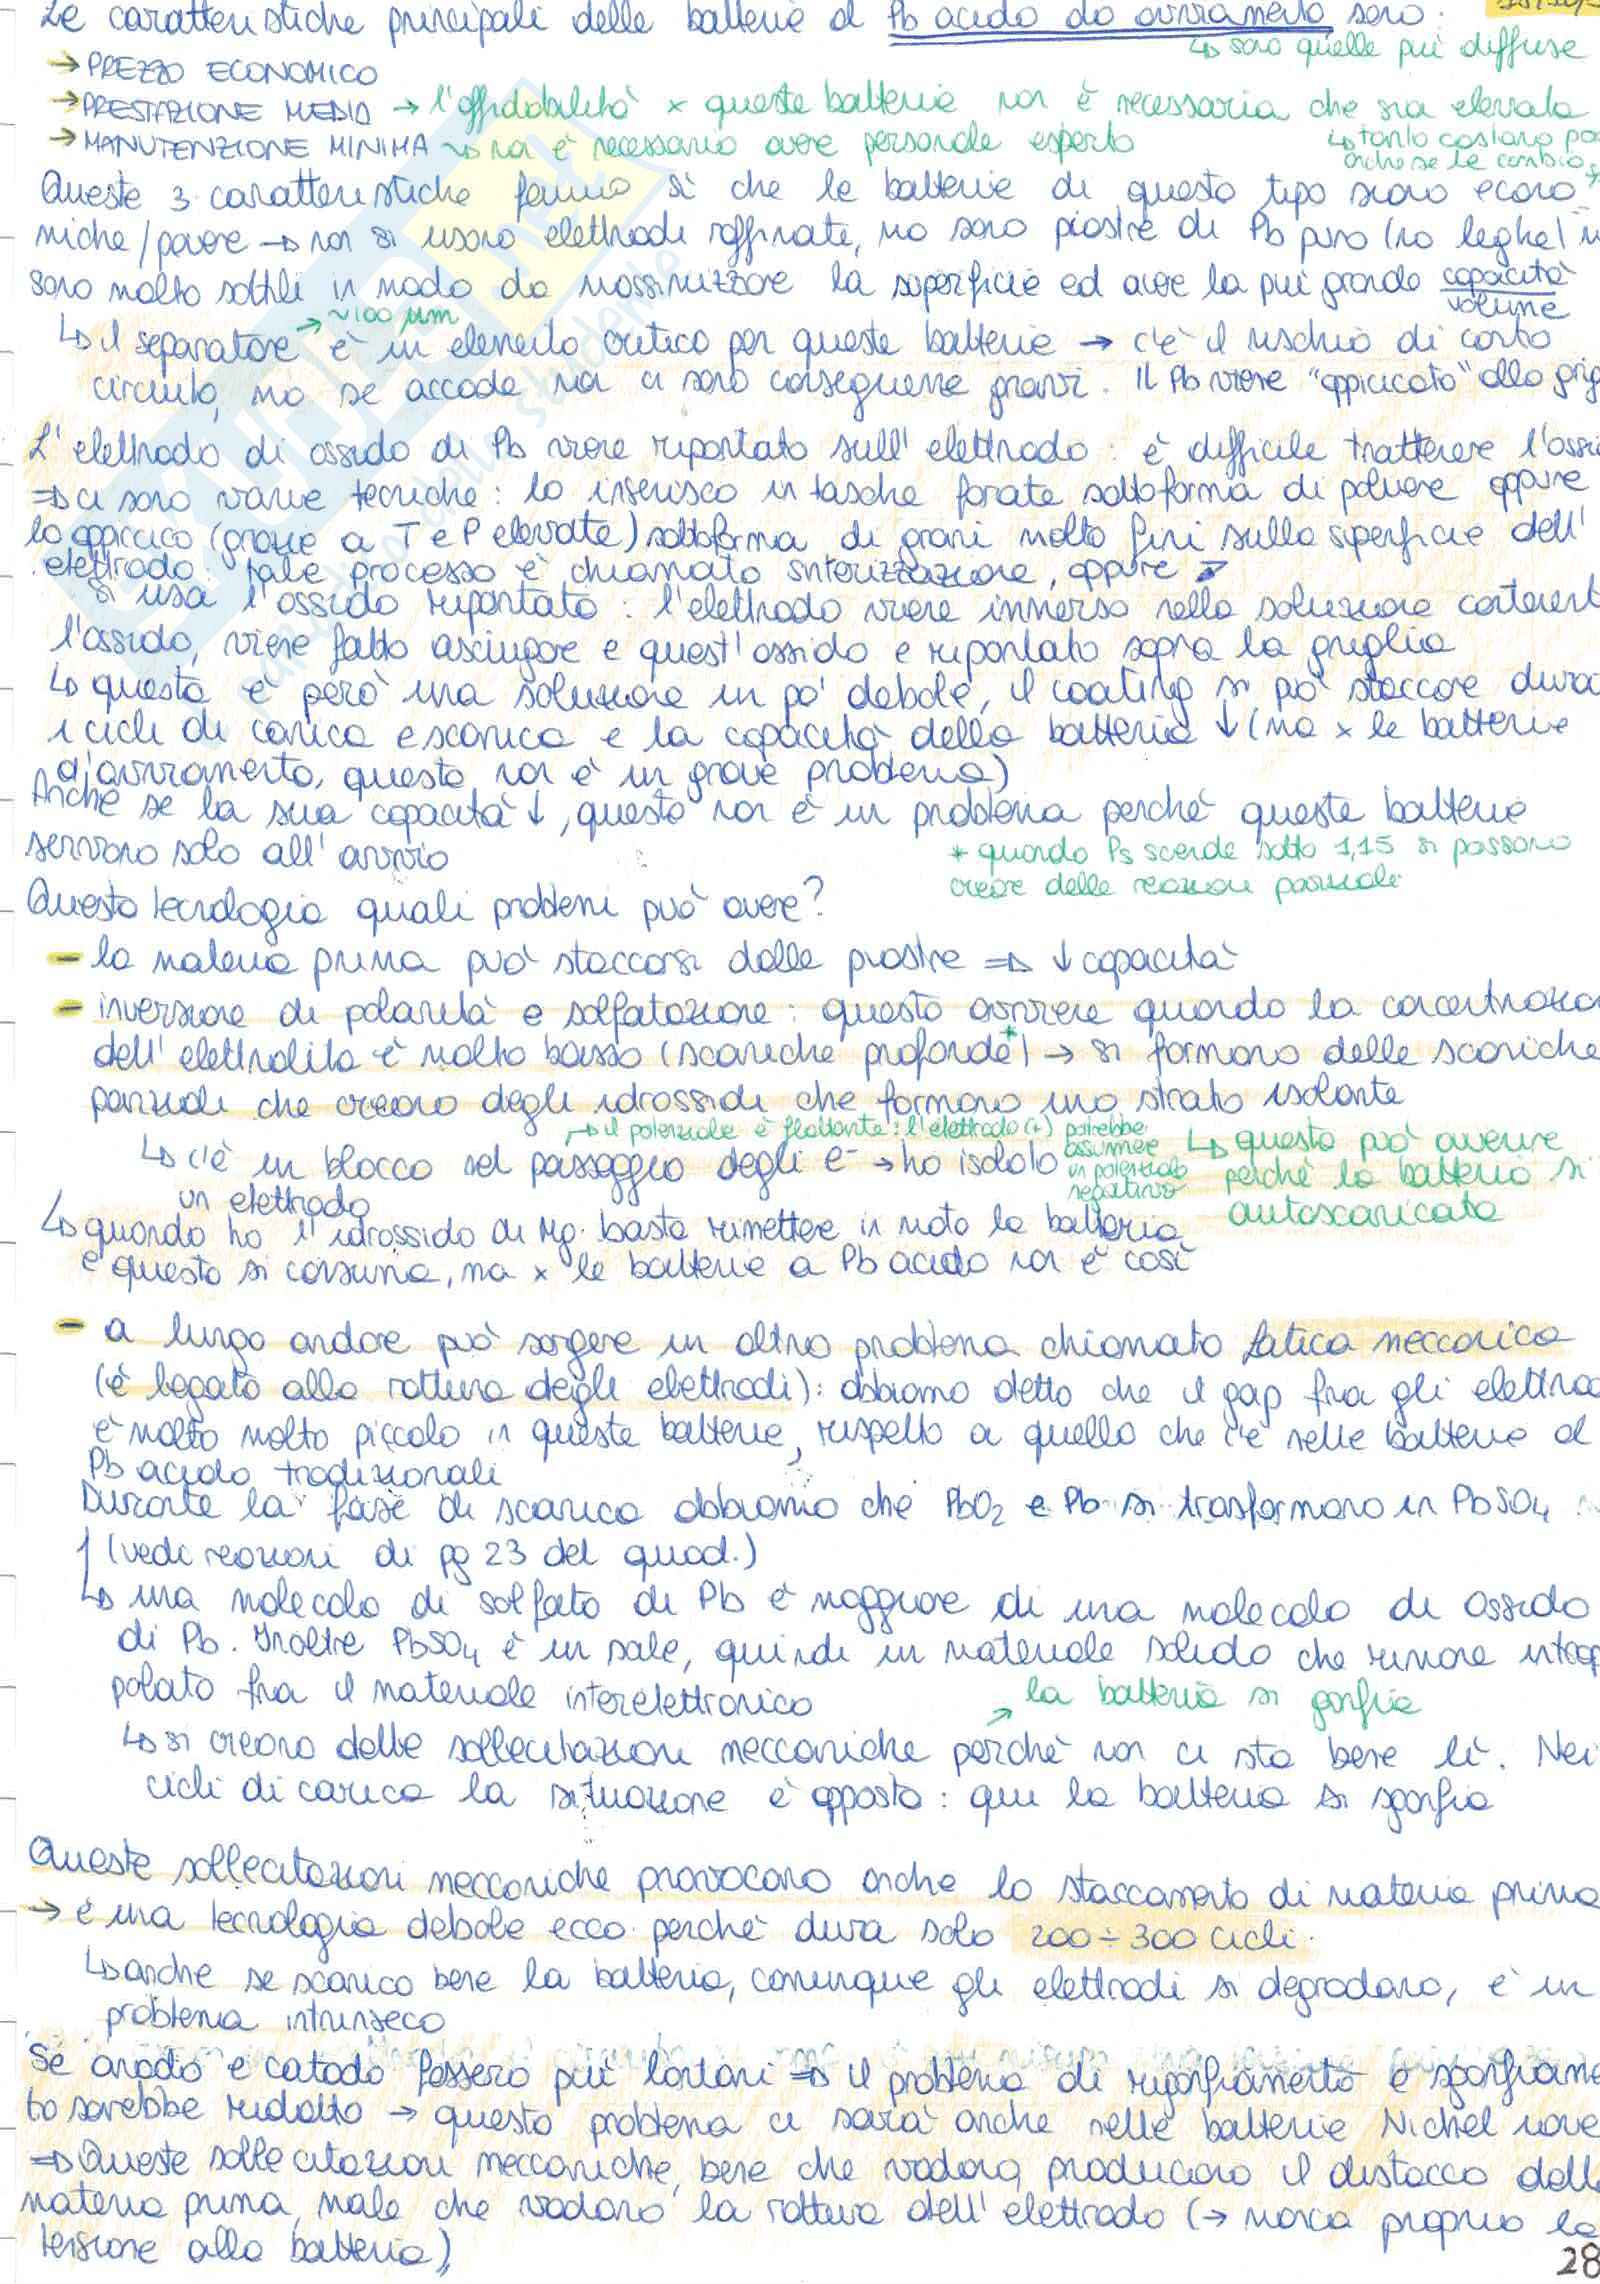 Le caratteristiche principali delle batterie al Pb acido da avviamento sono:
↳ sono quelle più diffuse
→ PREZZO ECONOMICO
→ PRESTAZIONE MEDIA → l'affidabilità x queste batterie non è necessaria che sia elevata
↳ tanto costano po
anche se le cambio
→ MANUTENZIONE MINIMA ↝ non è necessario avere personale esperto
Queste 3 caratteristiche fanno sì che le batterie di questo tipo siano econo-
miche/povere → non si usano elettrodi raffinati, ma sono piastre di Pb puro (no leghe)
sono molto sottili in modo da massimizzare la superficie ed avere la più grande capacità
volume
→ ~100 μm
↳ il separatore è un elemento critico per queste batterie → c'è il rischio di corto
circuito, ma se accade non ci sono conseguenze gravi. Il Pb viene "appiccicato" alla grig
L'elettrodo di ossido di Pb viene riportato sull'elettrodo: è difficile trattenere l'ossi
⇒ ci sono varie tecniche: lo inserisco in tasche forate sottoforma di polvere oppure
lo appiccico (grazie a T e P elevate) sottoforma di grani molto fini sulla superficie dell'
elettrodo: tale processo è chiamato sinterizzazione, oppure
si usa l'ossido riportato: l'elettrodo viene immerso nella soluzione contenent
l'ossido, viene fatto asciugare e quest'ossido è riportato sopra la griglia
↳ questa è però una soluzione un po' debole, il coating si può staccare dura
i cicli di carica e scarica e la capacità della batteria ↓ (ma x le batterie
d'avviamento, questo non è un grave problema)
Anche se la sua capacità ↓, questo non è un problema perché queste batterie
servono solo all'avvio
* quando Ps scende sotto 1,15 si possono
creare delle reazioni parziali
Questa tecnologia quali problemi può avere?
- la materia prima può staccarsi dalle piastre ⇒ ↓ capacità
- inversione di polarità e solfatazione: questo avviene quando la concentrazion
dell'elettrolita è molto bassa (scariche profonde*) → si formano delle scariche
parziali che creano degli idrossidi che formano uno strato isolante
→ il potenziale è flottante: l'elettrodo (+) potrebbe
assumere
un potenziale
negativo
↳ c'è un blocco nel passaggio degli e⁻ → ho isolato
un elettrodo
↳ questo può avvenire
perché la batteria si
autoscaricata
↳ quando ho l'idrossido di Mg basta rimettere in moto la batteria
e questo si consuma, ma x le batterie a Pb acido non è così
- a lungo andare può sorgere un altro problema chiamato fatica meccanica
(è legato alla rottura degli elettrodi): abbiamo detto che il gap fra gli elettro
è molto molto piccolo in queste batterie, rispetto a quello che c'è nelle batterie al
Pb acido tradizionali
Durante la fase di scarica abbiamo che PbO₂ e Pb si trasformano in PbSO₄
(vedi reazioni di pg 23 del quad.)
↳ una molecola di solfato di Pb è maggiore di una molecola di ossido
di Pb. Inoltre PbSO₄ è un sale, quindi un materiale solido che rimane intrap
polato fra il materiale interelettronico
→ la batteria si gonfia
↳ si creano delle sollecitazioni meccaniche perché non ci sta bene lì. Nei
cicli di carica la situazione è opposta: qui la batteria si sgonfia
Queste sollecitazioni meccaniche provocano anche lo staccamento di materia prima
→ è una tecnologia debole ecco perché dura solo 200÷300 cicli.
↳ anche se scarico bene la batteria, comunque gli elettrodi si degradano, è un
problema intrinseco
Se anodo e catodo fossero più lontani ⇒ il problema di rigonfiamento e sgonfiame
to sarebbe ridotto → questo problema ci sarà anche nelle batterie Nichel
⇒ Queste sollecitazioni meccaniche, bene che vadano, producono il distacco dell
materia prima, male che vadano la rottura dell'elettrodo (→ manca proprio la
tensione alla batteria)
28